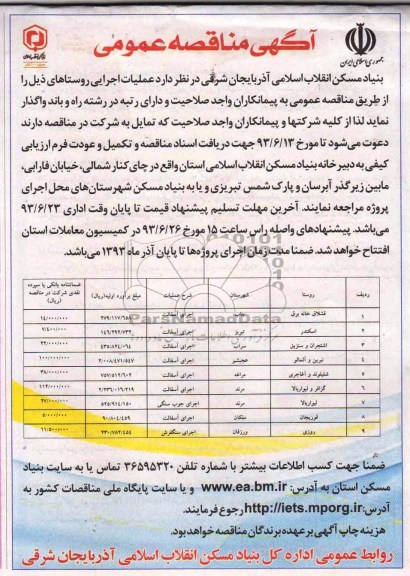 آگهی مناقصه عمومی
جمهوری اسلامی ایران
بنیاد مسکن انقلاب اسلامی آذربایجان شرقی در نظر دارد عملیات اجرایی روستاهای ذیل را
از طریق مناقصه عمومی به پیمانکاران واجد صلاحیت و دارای رتبه در رشته راه و باند واگذار
نماید لذا از کلیه شرکتها و پیمانکاران واجد صلاحیت که تمایل به شرکت در مناقصه دارند
دعوت می‌شود تا مورخ ۹۳/۶/۱۳ جهت دریافت اسناد مناقصه و تکمیل و عودت فرم ارزیابی
کیفی به دبیرخانه بنیاد مسکن انقلاب اسلامی استان واقع در چای کنار شمالی، خیابان فارابی،
مابین زیرگذر آبرسان و پارک شمس تبریزی و یا به بنیاد مسکن شهرستان‌های محل اجرای
پروژه مراجعه نمایند. آخرین مهلت تسلیم پیشنهاد قیمت تا پایان وقت اداری ۹۳/۶/۲۳
می‌باشد. پیشنهادهای واصله راس ساعت ۱۵ مورخ ۹۳/۶/۲۶ در کمیسیون معاملات استان
افتتاح خواهد شد. ضمنا مدت زمان اجرای پروژه‌ها تا پایان آذر ماه ۱۳۹۳ می‌باشد.
ردیف روستا شهرستان شرح عملیات مبلغ برآورد اولیه(ریال) ضمانتنامه بانکی یا سپرده نقدی شرکت در مناقصه (ریال)
۱ قشلاق خانه برق اجرای آسفالت
۲ اسکندر تبریز اجرای آسفالت
۳ اشتجران و سازین سراب اجرای آسفالت ۲۲/۰۰۰/۰۰۰
۴ تیرین و آلمالو عجبشیر اجرای آسفالت ۲/۰۰۸/۴۷۱/۵۴۷ ۱۰۰/۰۰۰/۰۰۰
۵ اجرای آسفالت ۳۸/۰۰۰/۰۰۰
۶ مرند اجرای آسفالت ۱۱۲/۰۰۰/۰۰۰
۷ مرند اجرای جوب سنگی ۴۷/۰۰۰/۰۰۰
۸ قوریجان ملکان اجرای آسفالت ۵/۰۰۰/۰۰۰
۹ ورزقان اجرای سنگفرش ۱۱/۵۰۰/۰۰۰
ParsNamadData
ضمنا جهت کسب اطلاعات بیشتر با شماره تلفن ۳۶۵۹۵۳۲۰ تماس یا به سایت بنیاد
مسکن استان به آدرس: www.ea.bm.ir و یا سایت پایگاه ملی مناقصات کشور به
آدرس: http://iets.mporg.ir رجوع فرمایند.
هزینه چاپ آگهی بر عهده برندگان مناقصه خواهد بود.
روابط عمومی اداره کل بنیاد مسکن انقلاب اسلامی آذربایجان شرقی